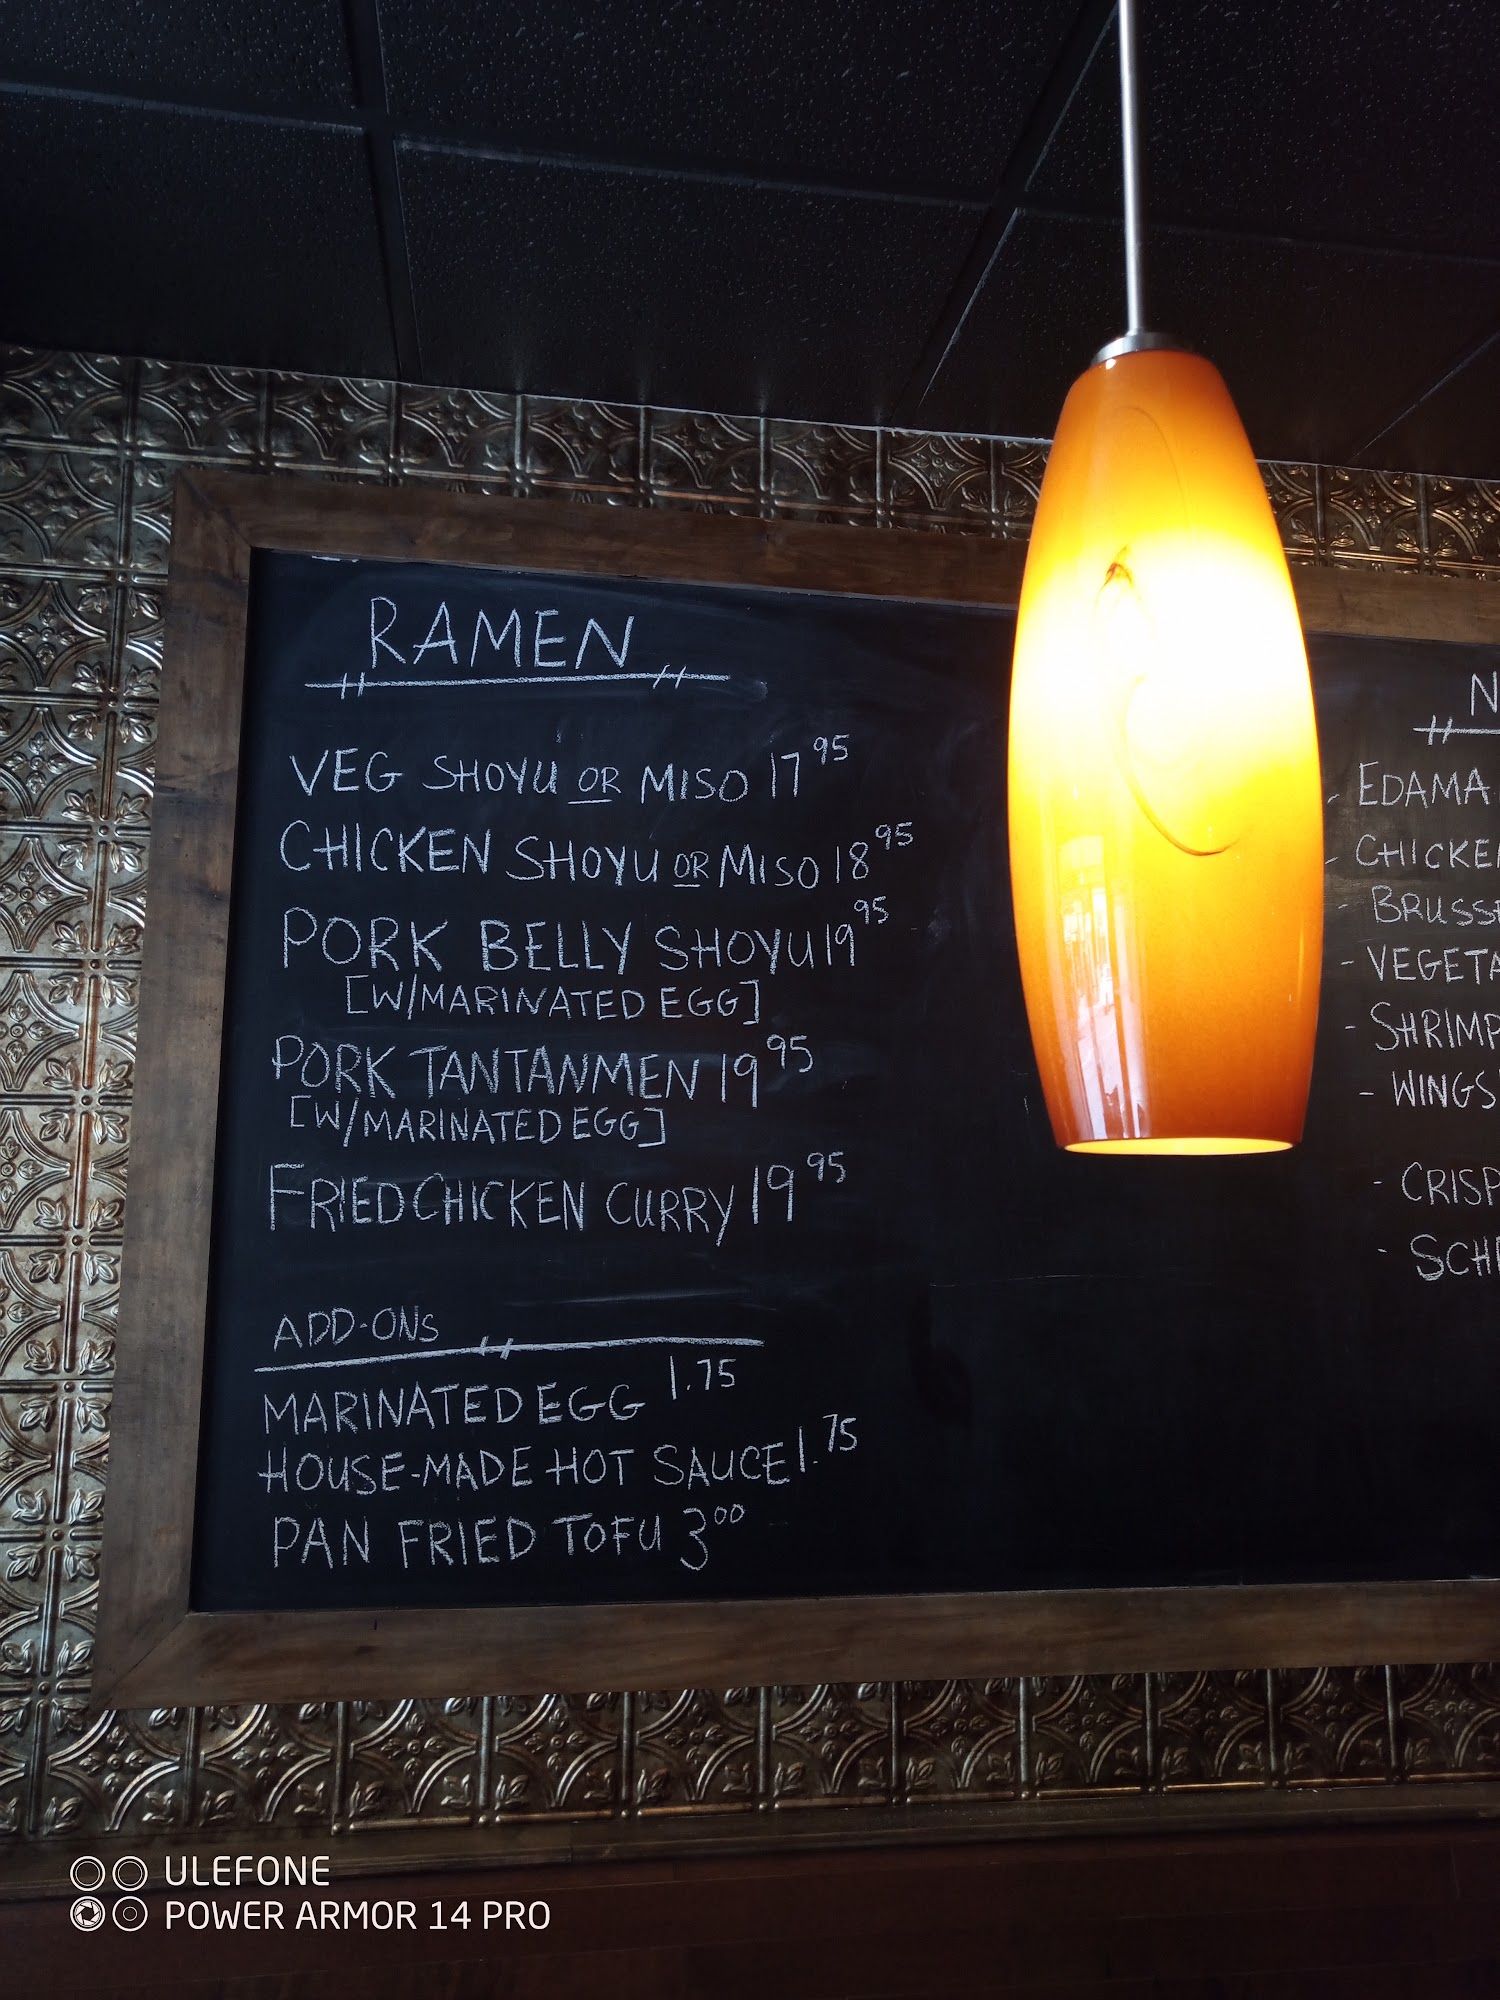 RAMEN
VEG SHOYU OR MISO 17 95
CHICKEN SHOYU OR MISO 18 95
PORK BELLY SHOYU 19 95
[W/MARINATED EGG]
PORK TANTANMEN 19 95
[W/MARINATED EGG]
FRIED CHICKEN CURRY 19 95
ADD-ONS
MARINATED EGG 1.75
HOUSE-MADE HOT SAUCE 1.75
PAN FRIED TOFU 3 00
N
- EDAMA
- CHICKE
- BRUSSE
- VEGETA
- SHRIMP
- WINGS
- CRISP
- SCH
ULEFONE
POWER ARMOR 14 PRO